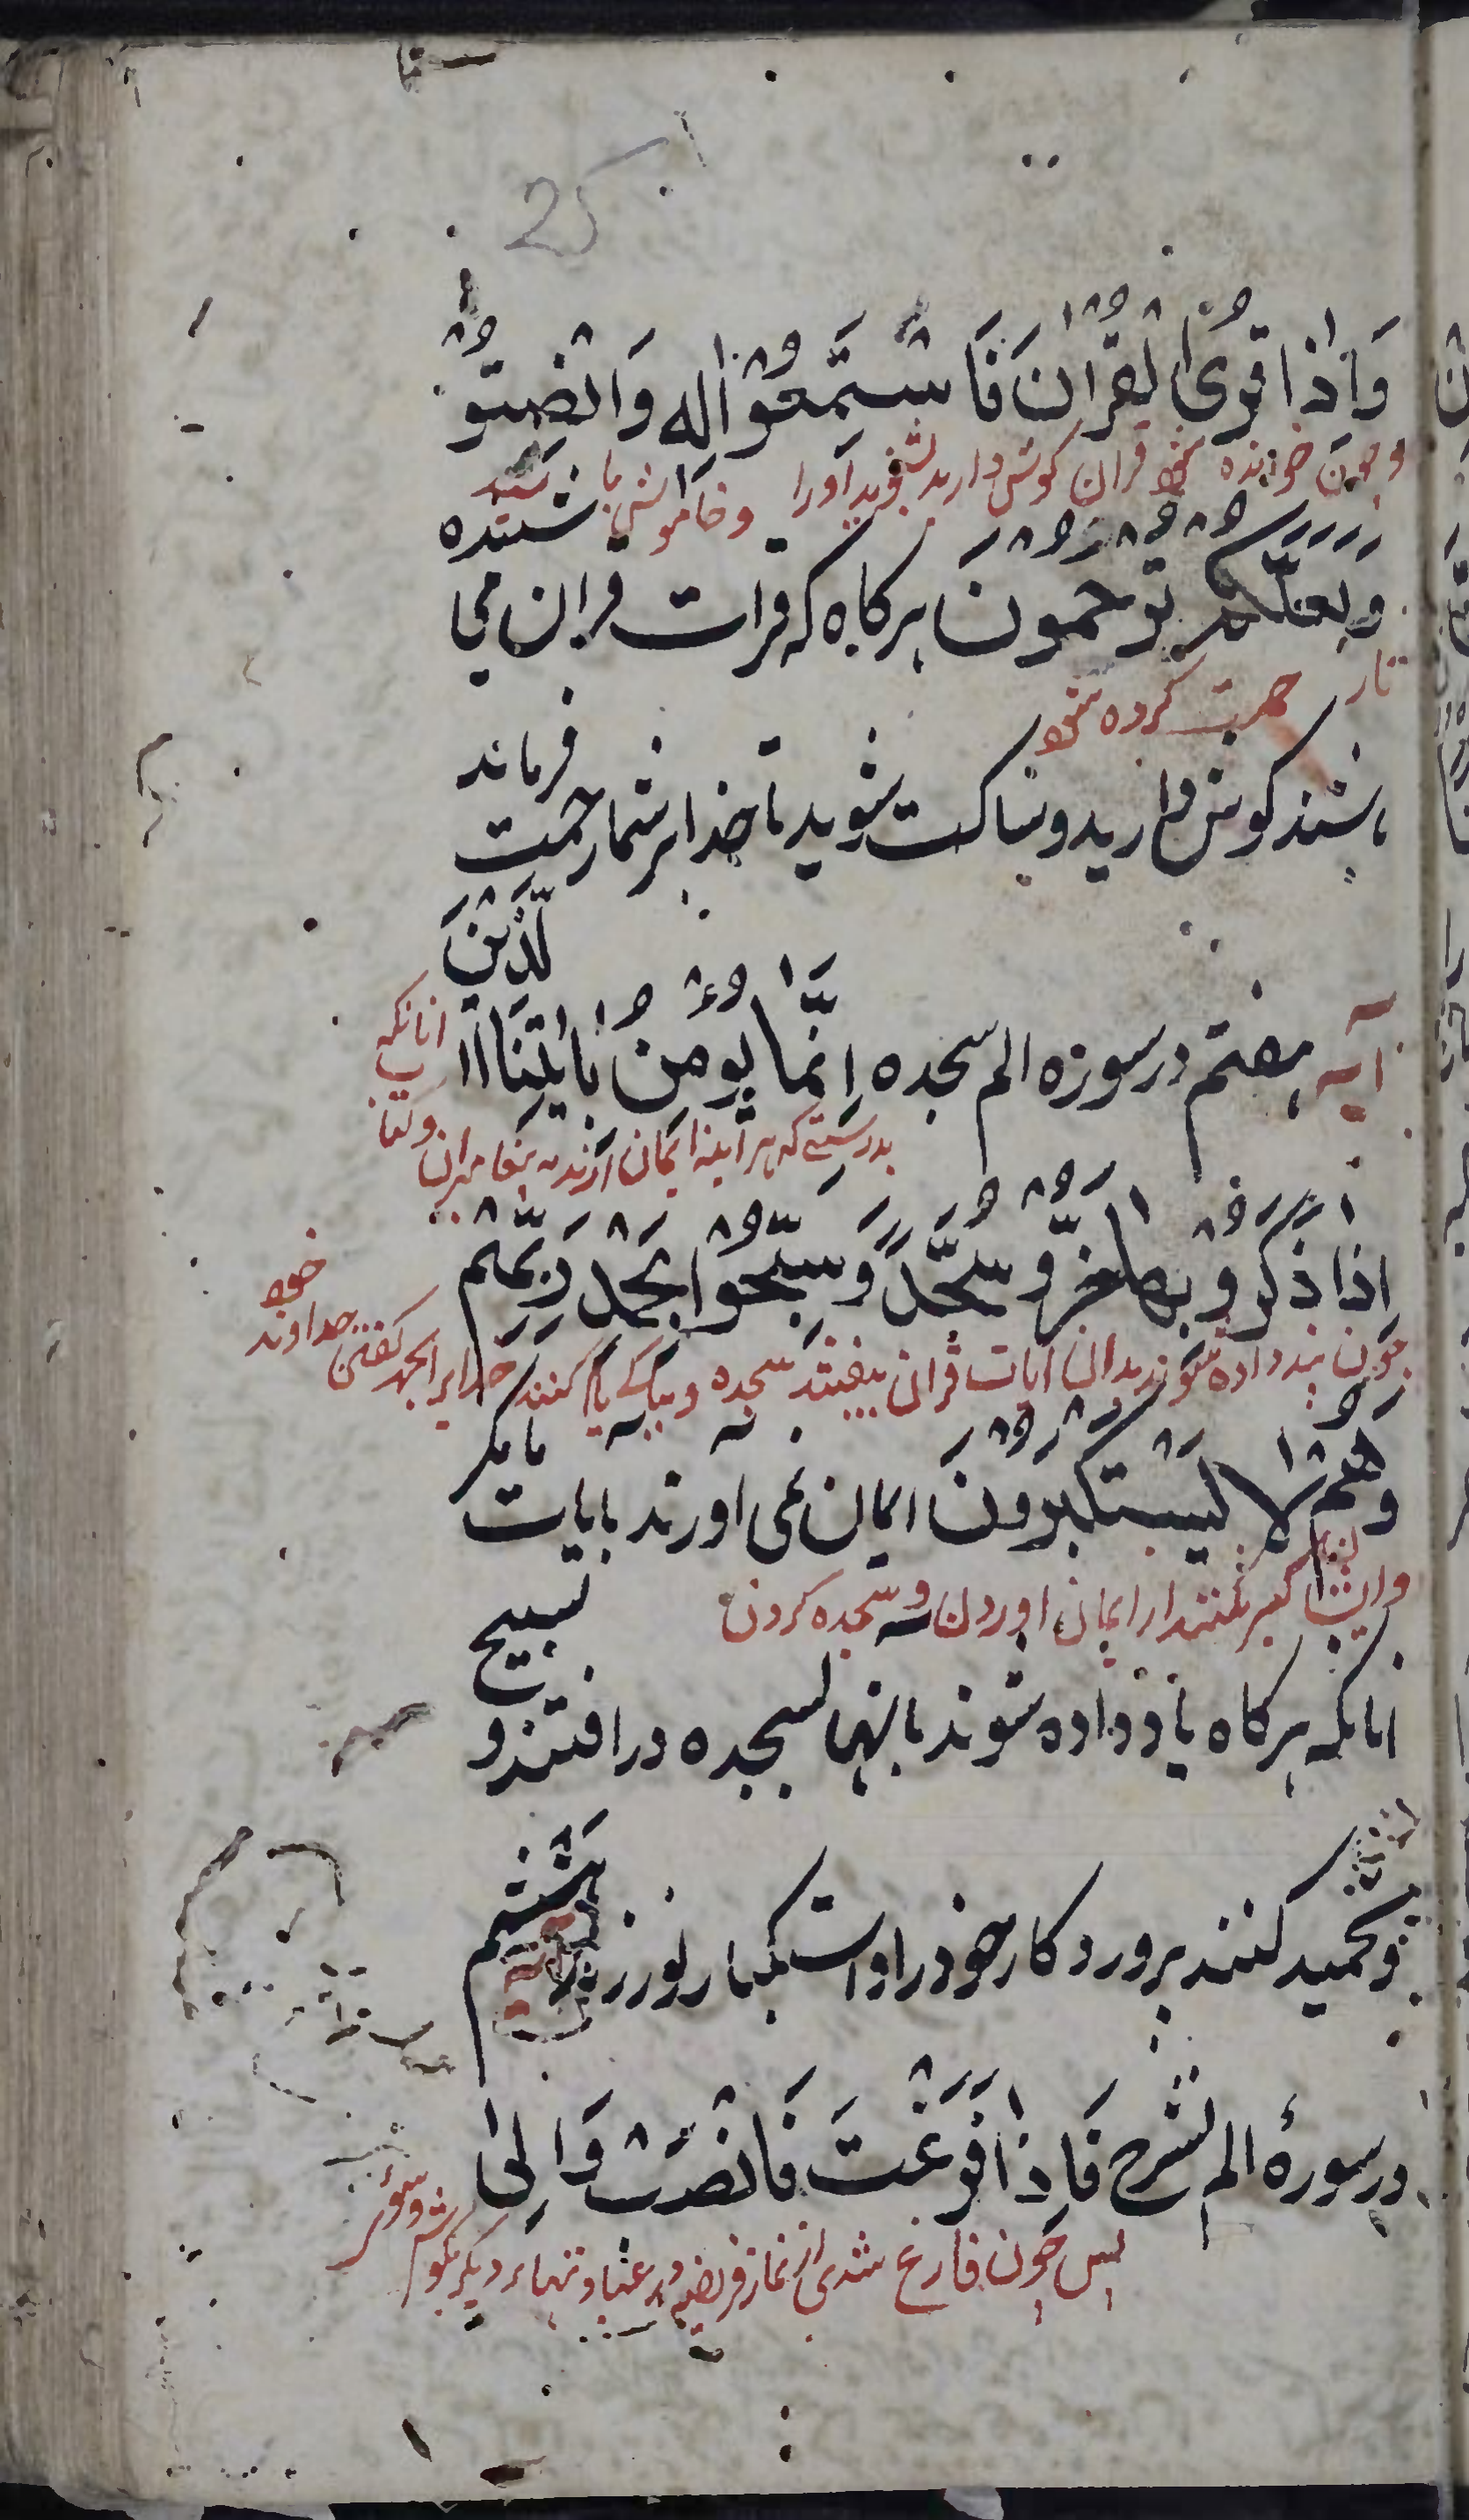 25
وَاِذَا قُرِئَ الْقُرْاٰنَ فَاسْتَمَعُوْا لَه وَانْصِتُوْ
وچون خوانده شود قران گوش دارید بشنوید اورا وخاموش باشید
شنیده
وَلَعَلَّكُمْ تُوْحَمُوْنَ هرکاه که قرات قران می
تار حمت کرده شود
فرماند
باشند کوش دارید وساکت شوید تا خدا بر شما رحمت
لَّذِيْنَ
آیه هفتم در سوره الم سجده اِنَّمَا يُوْمِنُ بِاٰيٰتِنَا ا
انانکه
بدرستی که هر آینه ایمان ارند به پیغامبران وکتا
اِذَا ذُكِّرُوْ بِهَا خَرُّوْ سُجَّدً وَّسَبِّحُوْا بِحَمْدِ رَبِّهِمْ
چون پند داده شوند بدان ایات قران بیفتند سجده و بپاکی یاد کنند خدایرا بحمد گفتن خداوند
خود
وَهُمْ لَا يَسْتَكْبِرُوْنَ ایمان نمی اورند بایات
ما مکر
وایشان کبر نکنند از ایمان اوردن وسجده کردن
تسبیح
انانکه هرکاه یاد داده شوند بانها بسجده در افتند و
وتحمید کنند پروردکار خود را واستکبار نورزند
هشتم
آیه
در سورهٔ الم نشرح فَاِذَا فَرَغْتَ فَانْصَبْ وَاِلٰى
پس چون فارغ شدی از نماز فریضه در دیکر